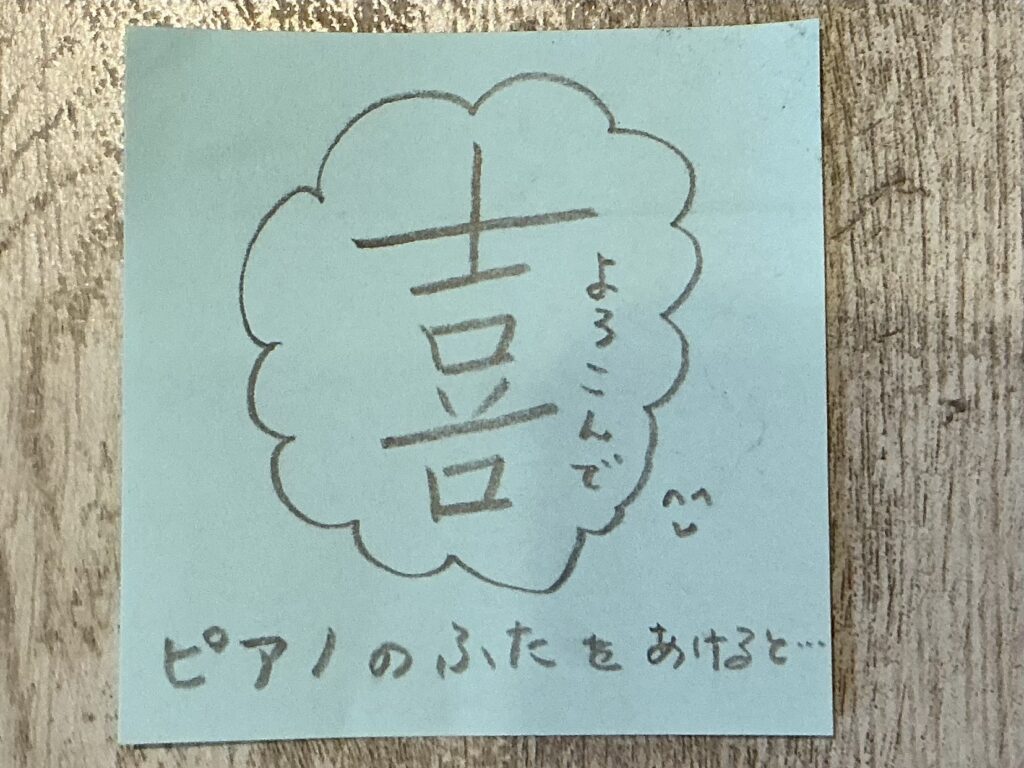 喜
よろこんで
ピアノのふたをあけると…